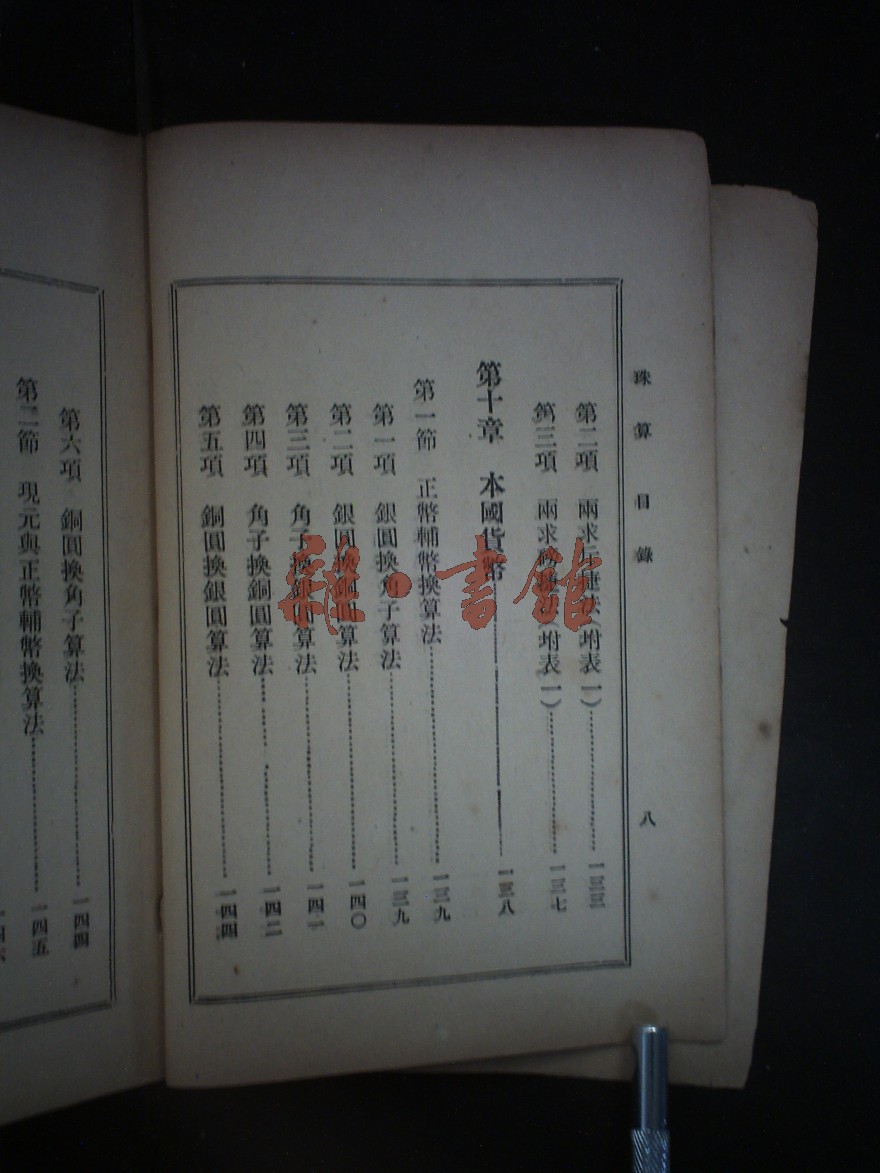 珠算目錄 八
第二項 兩求斤捷法(附表一)………一三三
第三項 兩求磅(附表一)………一三七
第十章 本國貨幣………一三八
第一節 正幣輔幣換算法………一三九
第一項 銀圓換角子算法………一三九
第二項 銀圓換銅圓算法………一四〇
第三項 角子換銀圓算法………一四一
第四項 角子換銅圓算法………一四二
第五項 銅圓換銀圓算法………一四四
第六項 銅圓換角子算法………一四四
第二節 現元與正幣輔幣換算法………一四五
雜·書館